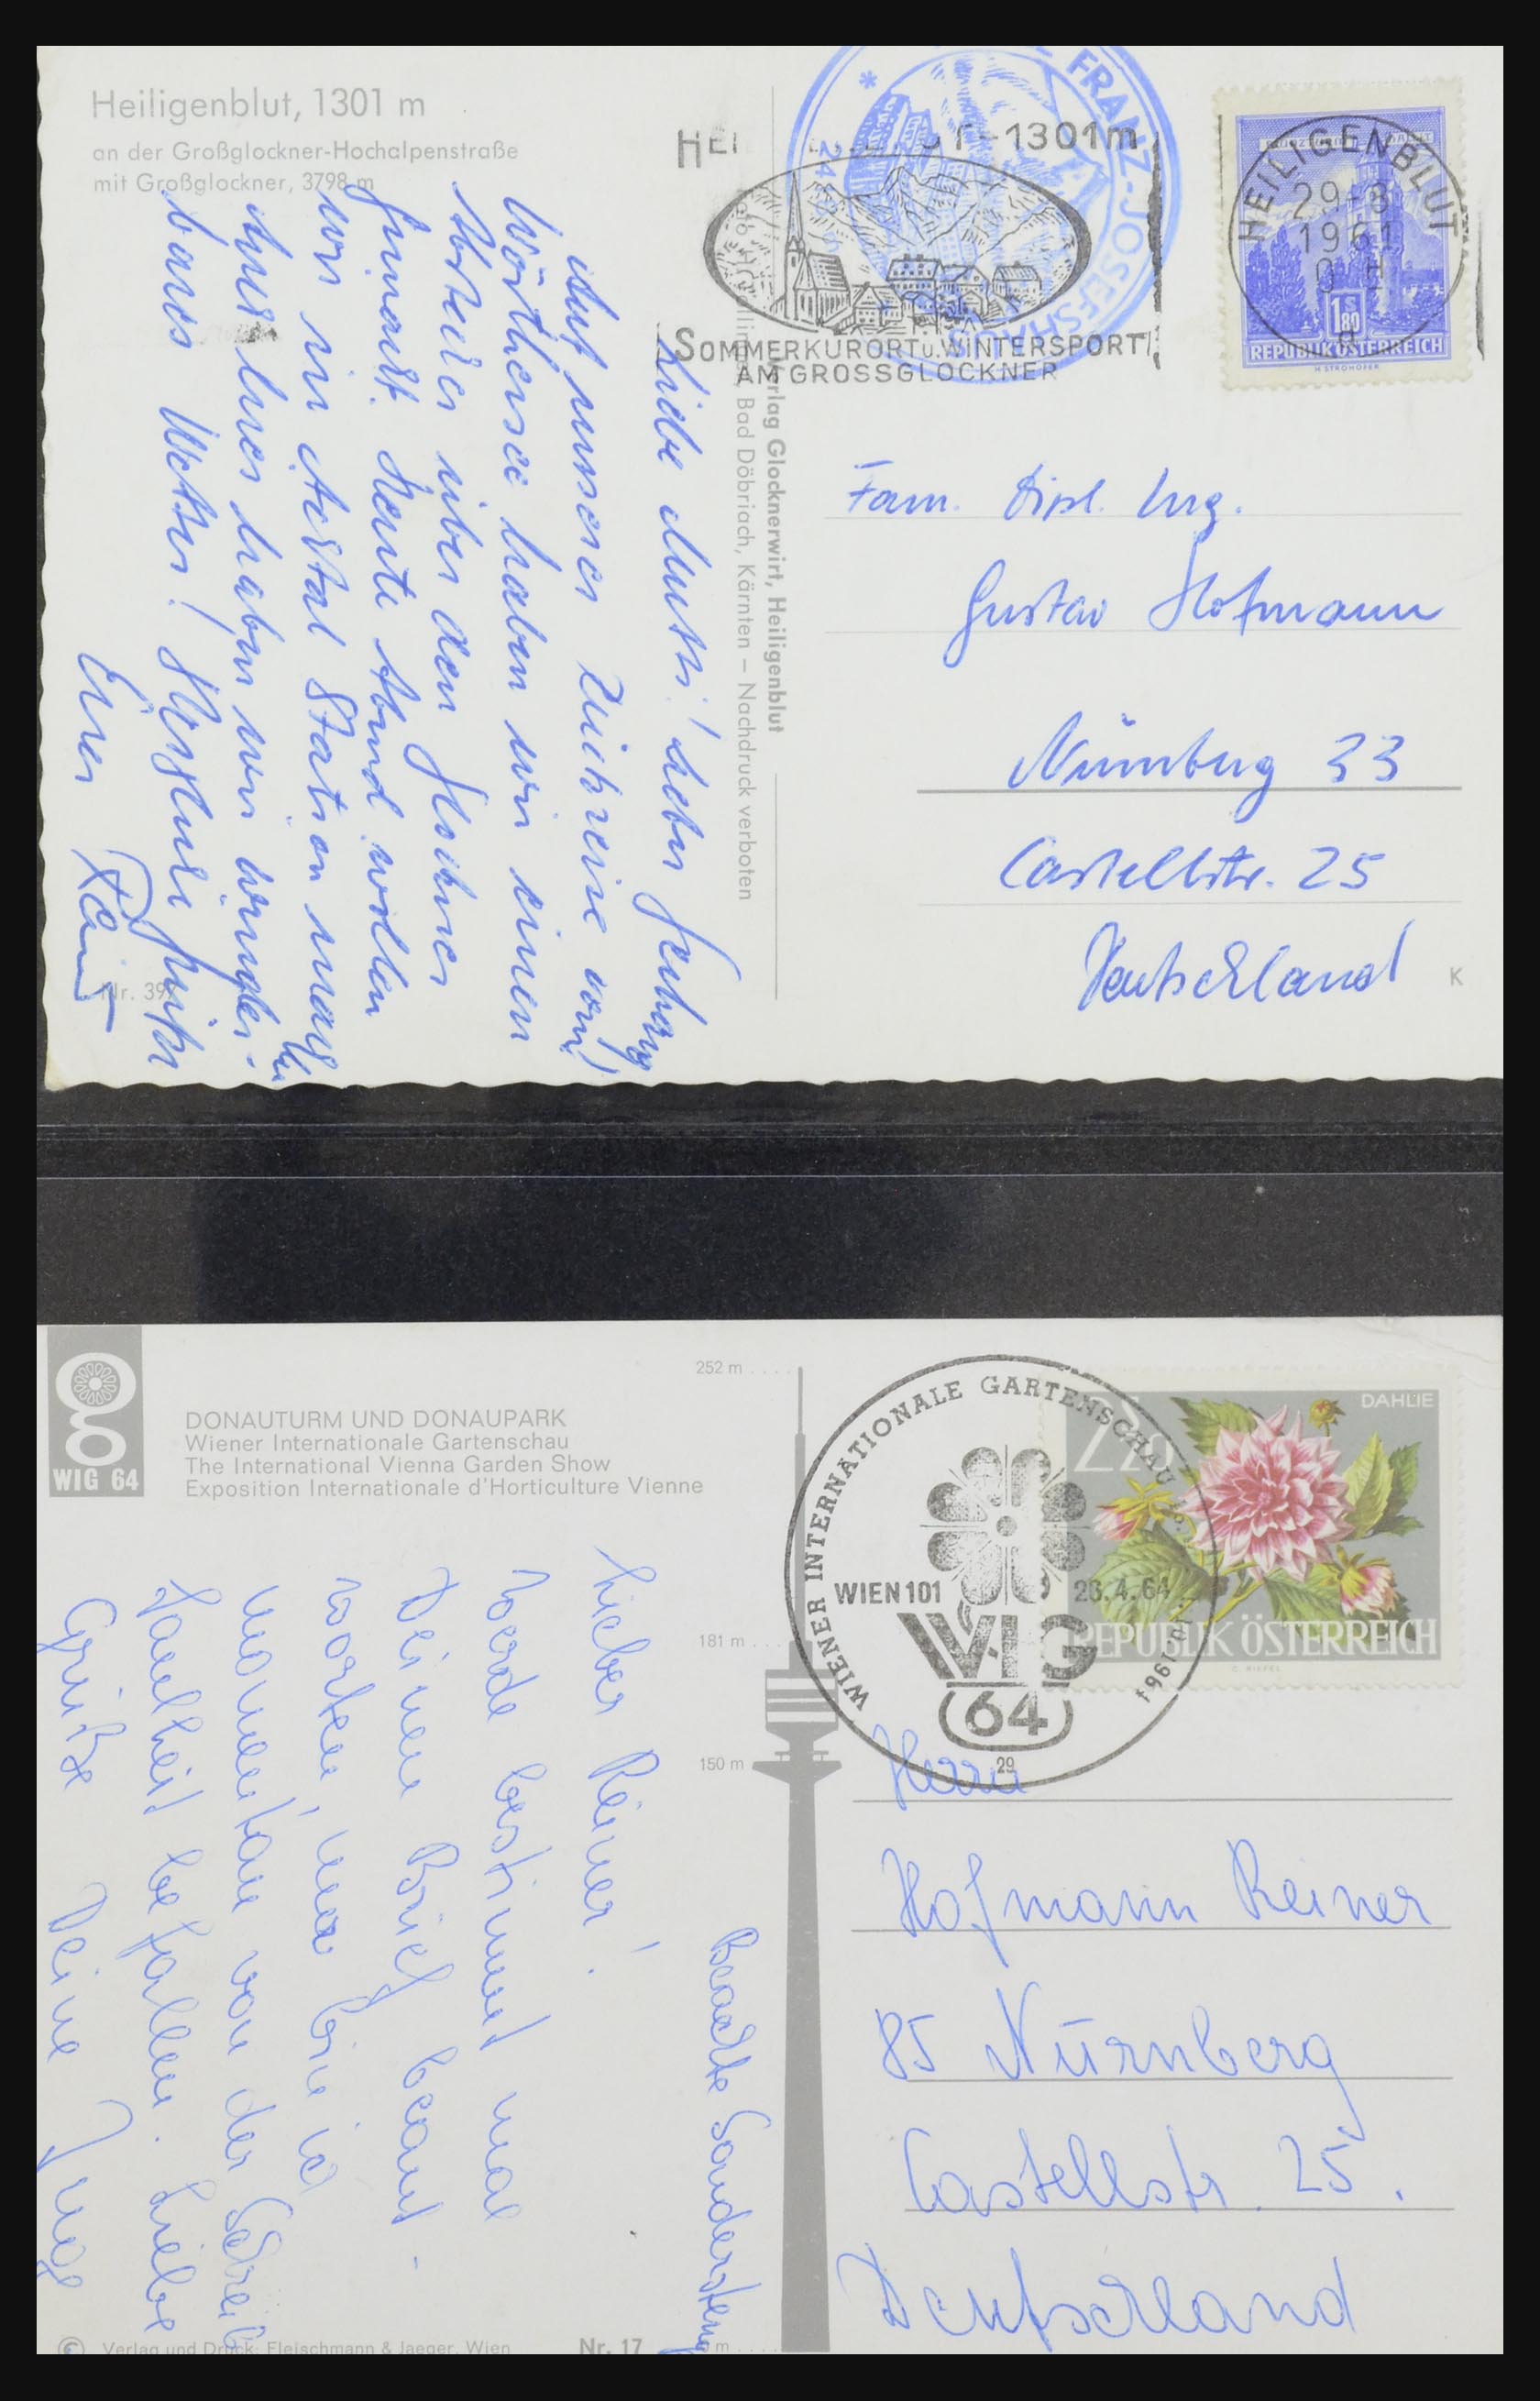 Heiligenblut, 1301 m
an der Großglockner-Hochalpenstraße
mit Großglockner, 3798 m
FRANZ-JOSEFSH
HEI UT-1301m
SOMMERKURORT u. WINTERSPORT
AM GROSSGLOCKNER
HEILIGENBLUT
29-8
1961
REPUBLIK ÖSTERREICH
1 S 80
H STROHOFER
Verlag Glocknerwirt, Heiligenblut
Bad Döbriach, Kärnten – Nachdruck verboten
Liebe Mutti! Lieber
Auf unserer Rückreise vom
Wörthersee haben wir einen
über den
gemacht. Heute Abend wollen
wir in Station machen
haben wir
bares Wetter! Herzliche Grüße
Euer
Fam. Dipl. Ing.
Gustav Hofmann
Nürnberg 33
Castellstr. 25
Deutschland
Nr. 39
K
WIG 64
DONAUTURM UND DONAUPARK
Wiener Internationale Gartenschau
The International Vienna Garden Show
Exposition Internationale d'Horticulture Vienne
252 m
181 m
150 m
WIENER INTERNATIONALE GARTENSCHAU
WIEN 101
23.4.64
WIG
64
29
DAHLIE
REPUBLIK ÖSTERREICH
Lieber Reiner!
Werde bestimmt mal
Deinen Brief beant-
worten, nur bin ich
momentan von der Schreib
faulheit befallen. Liebe
Grüße Deine Inge
Beachte Sonderstemp
Herrn
Hofmann Reiner
85 Nürnberg
Castellstr. 25.
Deutschland
© Verlag und Druck: Fleischmann & Jaeger, Wien
Nr. 17